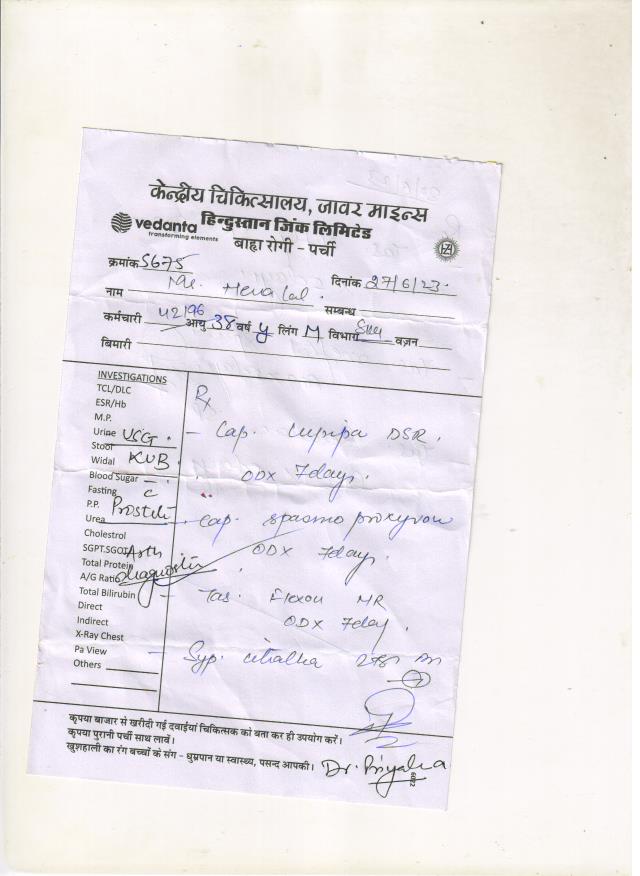 केन्द्रीय चिकित्सालय, जावर माइन्स
हिन्दुस्तान जिंक लिमिटेड
vedanta
transforming elements
बाह्य रोगी - पर्ची
क्रमांक 5675
दिनांक 27/6/23.
नाम Mr. Hera Lal.
सम्बन्ध
कर्मचारी 42196 आयु 38 वर्ष y लिंग M विभाग वज़न
बिमारी
INVESTIGATIONS
TCL/DLC
ESR/Hb
M.P.
Urine USG.
Stool
Widal KUB
Blood Sugar
Fasting C
P.P.
Urea
Cholestrol
SGPT.SGOT
Total Protein
A/G Ratio diagnostic
Total Bilirubin
Direct
Indirect
X-Ray Chest
Pa View
Others
Rx
- Cap. Lupipa DSR.
ODX 7day.
- Cap. spasmo proxyvon
ODX 7day.
- Tas. Flexon MR
ODX 7day.
- Syp. citralka 2tsf
कृपया बाजार से खरीदी गई दवाईयां चिकित्सक को बता कर ही उपयोग करें।
कृपया पुरानी पर्ची साथ लावें।
खुशहाली का रंग बच्चों के संग - धुम्रपान या स्वास्थ्य, पसन्द आपकी।
Dr. Priyanka